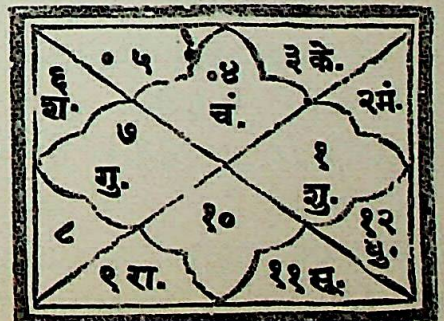 ५
४
चं.
३ के.
६
श.
२ मं.
७
गु.
१
शु.
१०
८
१२
बु.
९ रा.
११ सू.